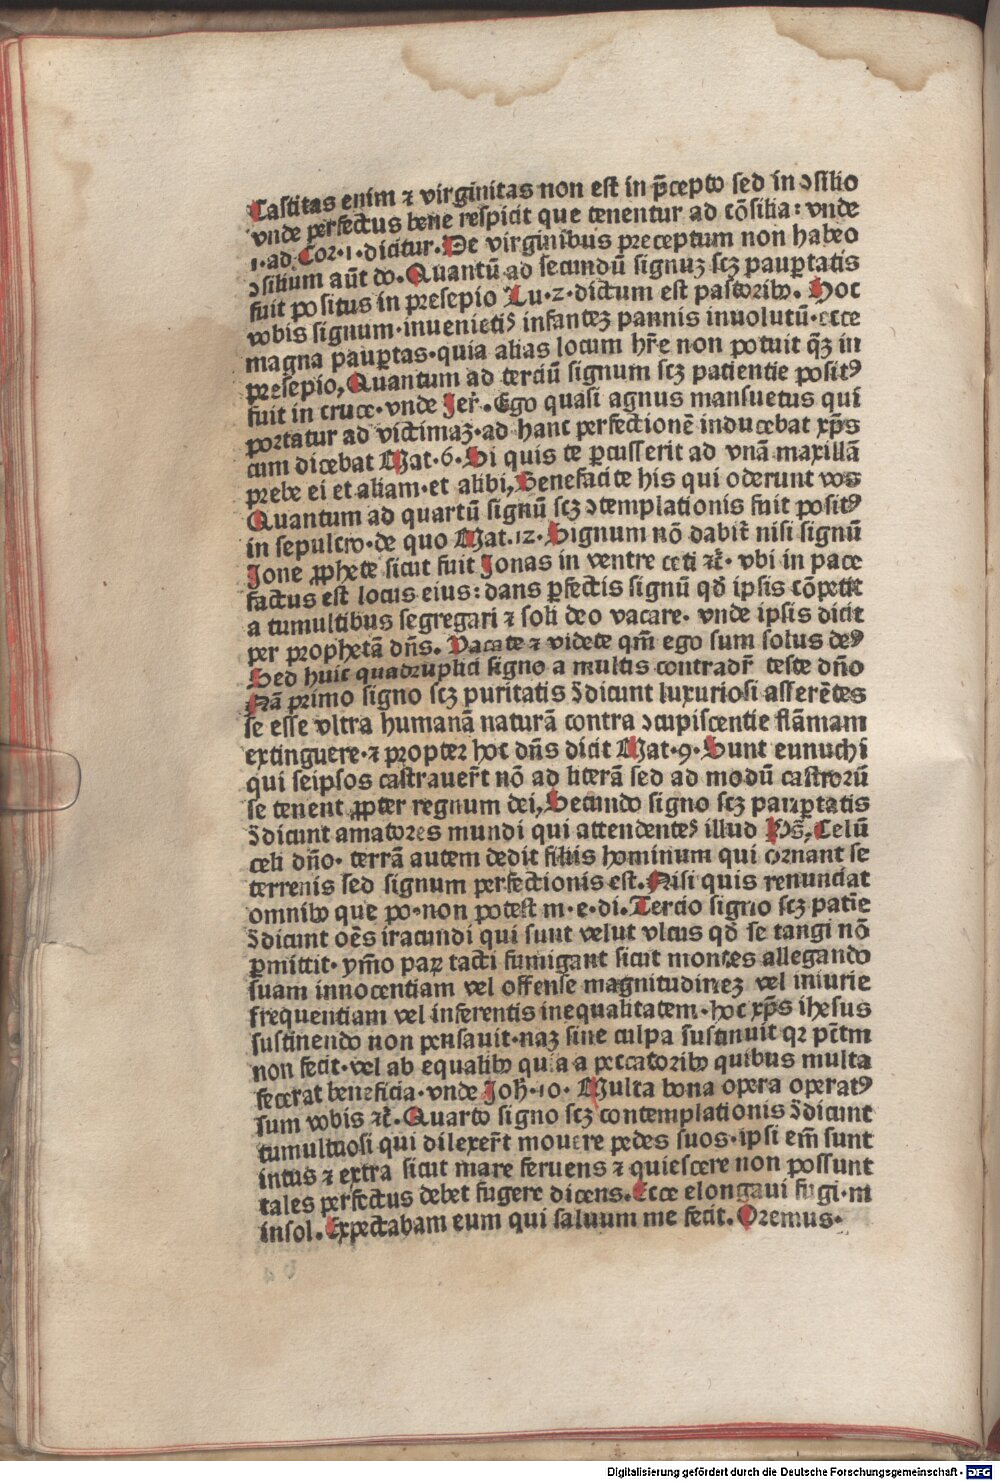 Castitas enim ⁊ virginitas non est in p̄cepto sed in ↄsilio
vnde perfectus bene respicit que tenentur ad cōsilia: vnde
1·ad Cor·1·dicitur. De virginibus preceptum non habeo
ↄsilium aūt do. Quantū ad secundū signuꝫ scꝫ pauꝑtatis
fuit positus in presepio Lu·2·dictum est pastoribꝰ. Hoc
vobis signum·inuenietis infanteꝫ pannis inuolutū·ecce
magna pauꝑtas·quia alias locum hr̄e non potuit q̄ꝫ in
presepio, Quantum ad terciū signum scꝫ patientie positꝰ
fuit in cruce·vnde Jer̄. Ego quasi agnus mansuetus qui
portatur ad victimaꝫ·ad hanc perfectionē inducebat xp̄s
cum dicebat Mat·6·Si quis te ꝑcusserit ad vnā maxillā
prebe ei et aliam·et alibi, Benefacite his qui oderunt vos
Quantum ad quartū signū scꝫ ↄtemplationis fuit positꝰ
in sepulcro·de quo Mat.12·Signum nō dabit̄ nisi signū
Jone ꝓphete sicut fuit Jonas in ventre ceti ⁊c̄· vbi in pace
factus est locus eius: dans ꝑfectis signū qd̄ ipsis cōpetit
a tumultibus segregari ⁊ soli deo vacare· vnde ipsis dicit
per prophetā dn̄s. Vacate ⁊ videte qm̄ ego sum solus deꝰ
Sed huic quadruplici signo a multis contradr̄ teste dn̄o
Nā primo signo scꝫ puritatis ↄ̄dicunt luxuriosi asserētes
se esse vltra humanā naturā contra ↄcupiscentie flāmam
extinguere·⁊ propter hoc dn̄s dicit Mat·9·Sunt eunuchi
qui seipsos castrauer̄t nō ad literā sed ad modū castrorū
se tenent ꝓpter regnum dei, Secundo signo scꝫ pauꝑtatis
ↄ̄dicunt amatores mundi qui attendentes illud Ps̄, Celū
celi dn̄o· terrā autem dedit filiis hominum qui ornant se
terrenis sed signum perfectionis est. Nisi quis renunciat
omnibꝰ que po·non potest m·e·di. Tercio signo scꝫ patiē
ↄ̄dicunt oēs iracundi qui sunt velut vlcus qd̄ se tangi nō
ꝑmittit·ymo paꝝ tacti fumigant sicut montes allegando
suam innocentiam vel offense magnitudineꝫ vel iniurie
frequentiam vel inferentis inequalitatem·hoc xp̄s ihesus
sustinendo non pensauit·naꝫ sine culpa sustinuit qꝛ pc̄tm
non fecit·vel ab equalibꝰ quia a peccatoribꝰ quibus multa
fecerat beneficia·vnde Joh̄·10· Multa bona opera operatꝰ
sum vobis ⁊c̄. Quarto signo scꝫ contemplationis ↄ̄dicunt
tumultuosi qui dilexer̄t mouere pedes suos·ipsi em̄ sunt
intus ⁊ extra sicut mare feruens ⁊ quiescere non possunt
tales perfectus debet fugere dicens. Ecce elongaui fugi·m
in sol. Expectabam eum qui saluum me fecit. Oremus·
Digitalisierung gefördert durch die Deutsche Forschungsgemeinschaft - DFG